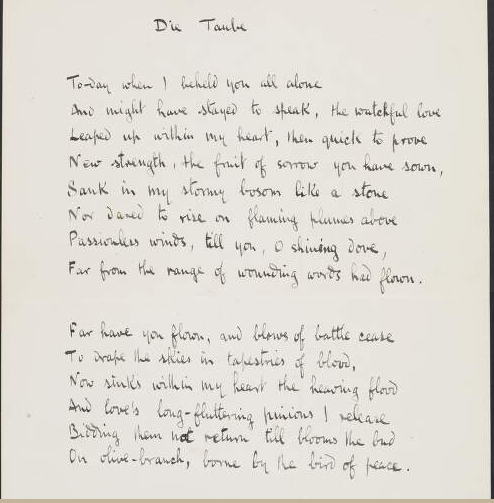 Die Taube
To-day when I beheld you all alone
And might have stayed to speak, the watchful love
Leaped up within my heart, then quick to prove
New strength, the fruit of sorrow you have sown,
Sank in my stormy bosom like a stone
Nor dared to rise on flaming plumes above
Passionless winds, till you, O shining dove,
Far from the range of wounding words had flown.
Far have you flown, and blows of battle cease
To drape the skies in tapestries of blood,
Now sinks within my heart the heaving flood
And love's long-fluttering pinions I release
Bidding them not return till blooms the bud
On olive-branch, borne by the bird of peace.